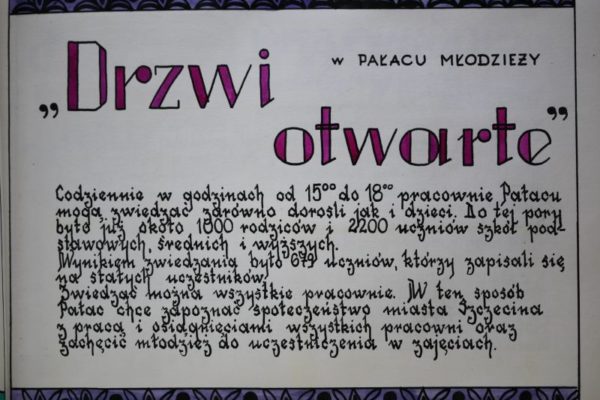 w PAŁACU MŁODZIEŻY
„Drzwi
otwarte”
Codziennie w godzinach od 15⁰⁰ do 18⁰⁰ pracownie Pałacu
mogą zwiedzać zarówno dorośli jak i dzieci. Do tej pory
było już około 1000 rodziców i 2200 uczniów szkół pod-
stawowych, średnich i wyższych.
Wynikiem zwiedzania było 673 uczniów, którzy zapisali się
na stałych uczestników.
Zwiedzać można wszystkie pracownie. W ten sposób
Pałac chce zapoznać społeczeństwo miasta Szczecina
z pracą i osiągnięciami wszystkich pracowni oraz
zachęcić młodzież do uczestniczenia w zajęciach.